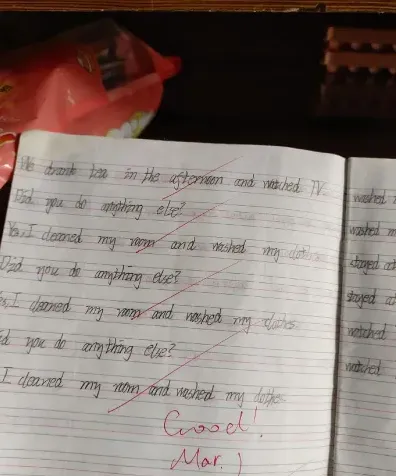 We drank tea in the afternoon and watched TV
Did you do anything else?
Yes, I cleaned my room and washed my clothes
Did you do anything else?
Yes, I cleaned my room and washed my clothes
Did you do anything else?
I cleaned my room and washed my clothes
Good!
Mar. 1
washed
washed m
stayed at
stayed at
watched
watched